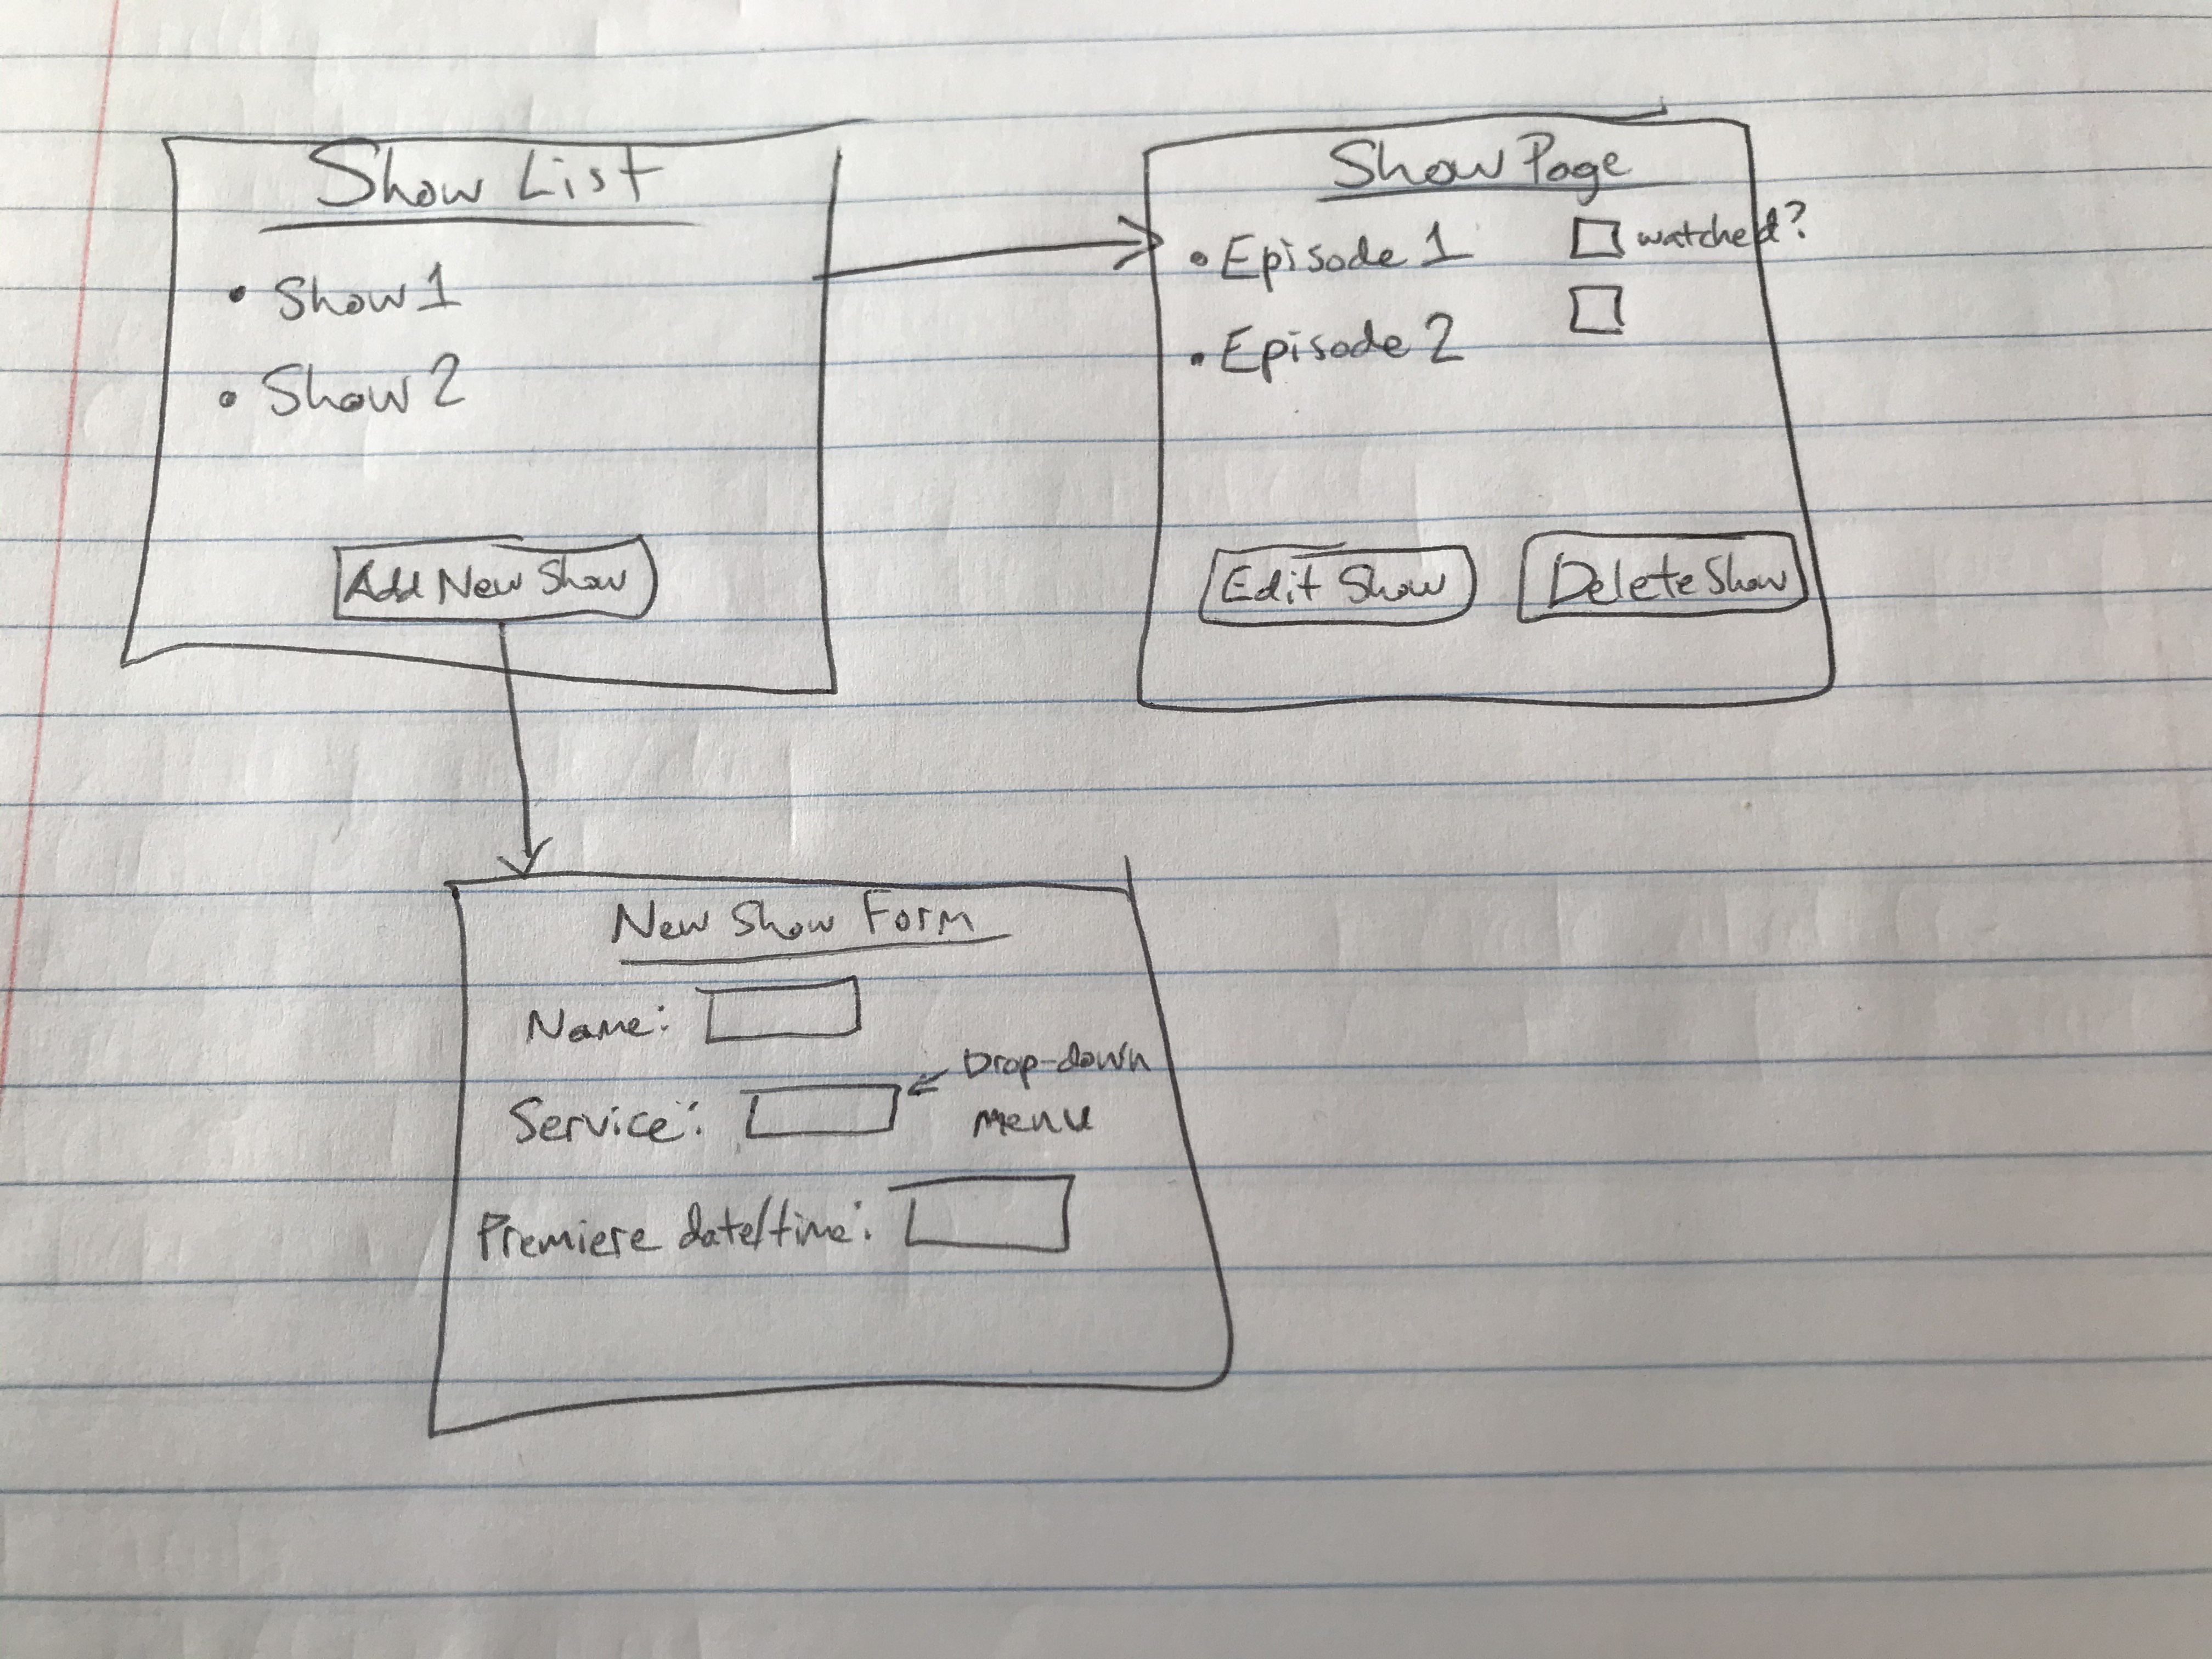 Show List
• Show 1
• Show 2
Add New Show
Show Page
• Episode 1 watched?
• Episode 2
Edit Show
Delete Show
New Show Form
Name:
Service: Drop-down
menu
Premiere date/time: